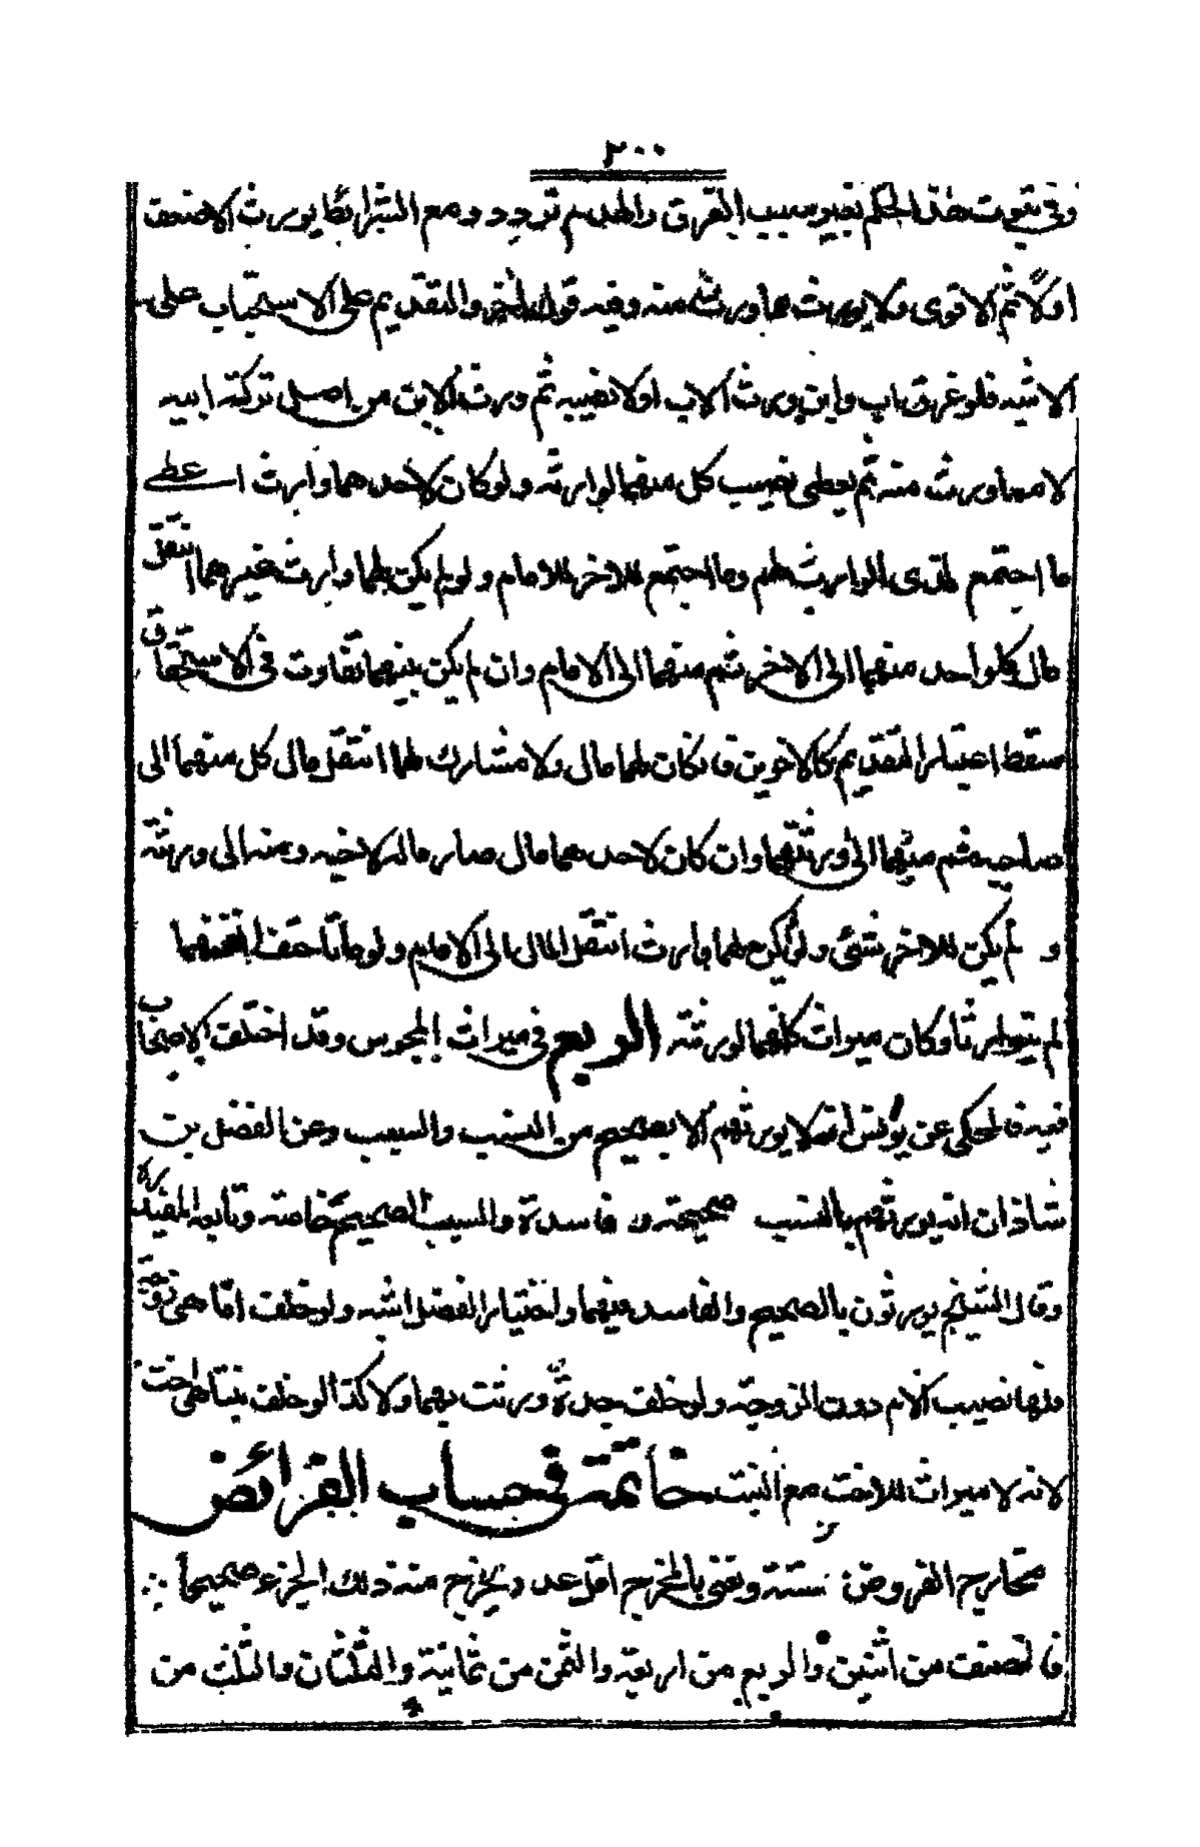 ٢٠٠
وفي ثبوت هذا الحكم بغير سبب الغرق والهدم تردد ومع الشرائط يورث الاضعف
اولا ثم الاقوى ولا يورث مما ورث منه وفيه قول اخر والتقديم على الاستحباب على
الاشبه فلو غرق اب وابن ورث الاب اولا نصيبه ثم ورث الابن من اصل تركة ابيه
لا مما ورث منه ثم يعطى نصيب كل منهما لوارثه ولو كان لاحدهما وارث اعطى
ما اجتمع لذى الوارث لهم وما اجتمع للاخر للامام ولو لم يكن لهما وارث غيرهما انتقل
مال كل واحد منهما الى الاخر ثم منهما الى الامام وان لم يكن بينهما تفاوت في الاستحقاق
سقط اعتبار التقديم كالاخوين فان كان لهما مال ولا مشارك لهما انتقل مال كل منهما الى
صاحبه ثم منهما الى ورثتهما وان كان لاحدهما مال صار ماله لاخيه ومنه الى ورثته
و لم يكن للاخر شئ ولو لم يكن لهما وارث انتقل المال الى الامام ولو ماتا حتف انفهما
لم يتوارثا وكان ميراث كل منهما لورثته الرابع في ميراث المجوس وقد اختلف الاصحاب
فيه فالمحكى عن يونس انه لا يورثهم الا بصحيح من النسب والسبب وعن الفضل بن
شاذان انه يورثهم بالنسب صحيحه و فاسده والسبب الصحيح خاصة وتابعه المفيد ره
وقال الشيخ يورثون بالصحيح والفاسد فيهما واختيار الفضل اشبه ولو خلف اما هي زوجة
فلها نصيب الام دون الزوجة ولو خلف جدة ورثت بهما ولا كذا لو خلف بنتا هي اخت
لانه لا ميراث للاخت مع البنت خاتمة في حساب الفرائض
مخارج الفروض ستة ونعنى بالمخرج اقل عدد يخرج منه ذلك الجزء صحيحا
فالنصف من اثنين والربع من اربعة والثمن من ثمانية والثلثان والثلث من